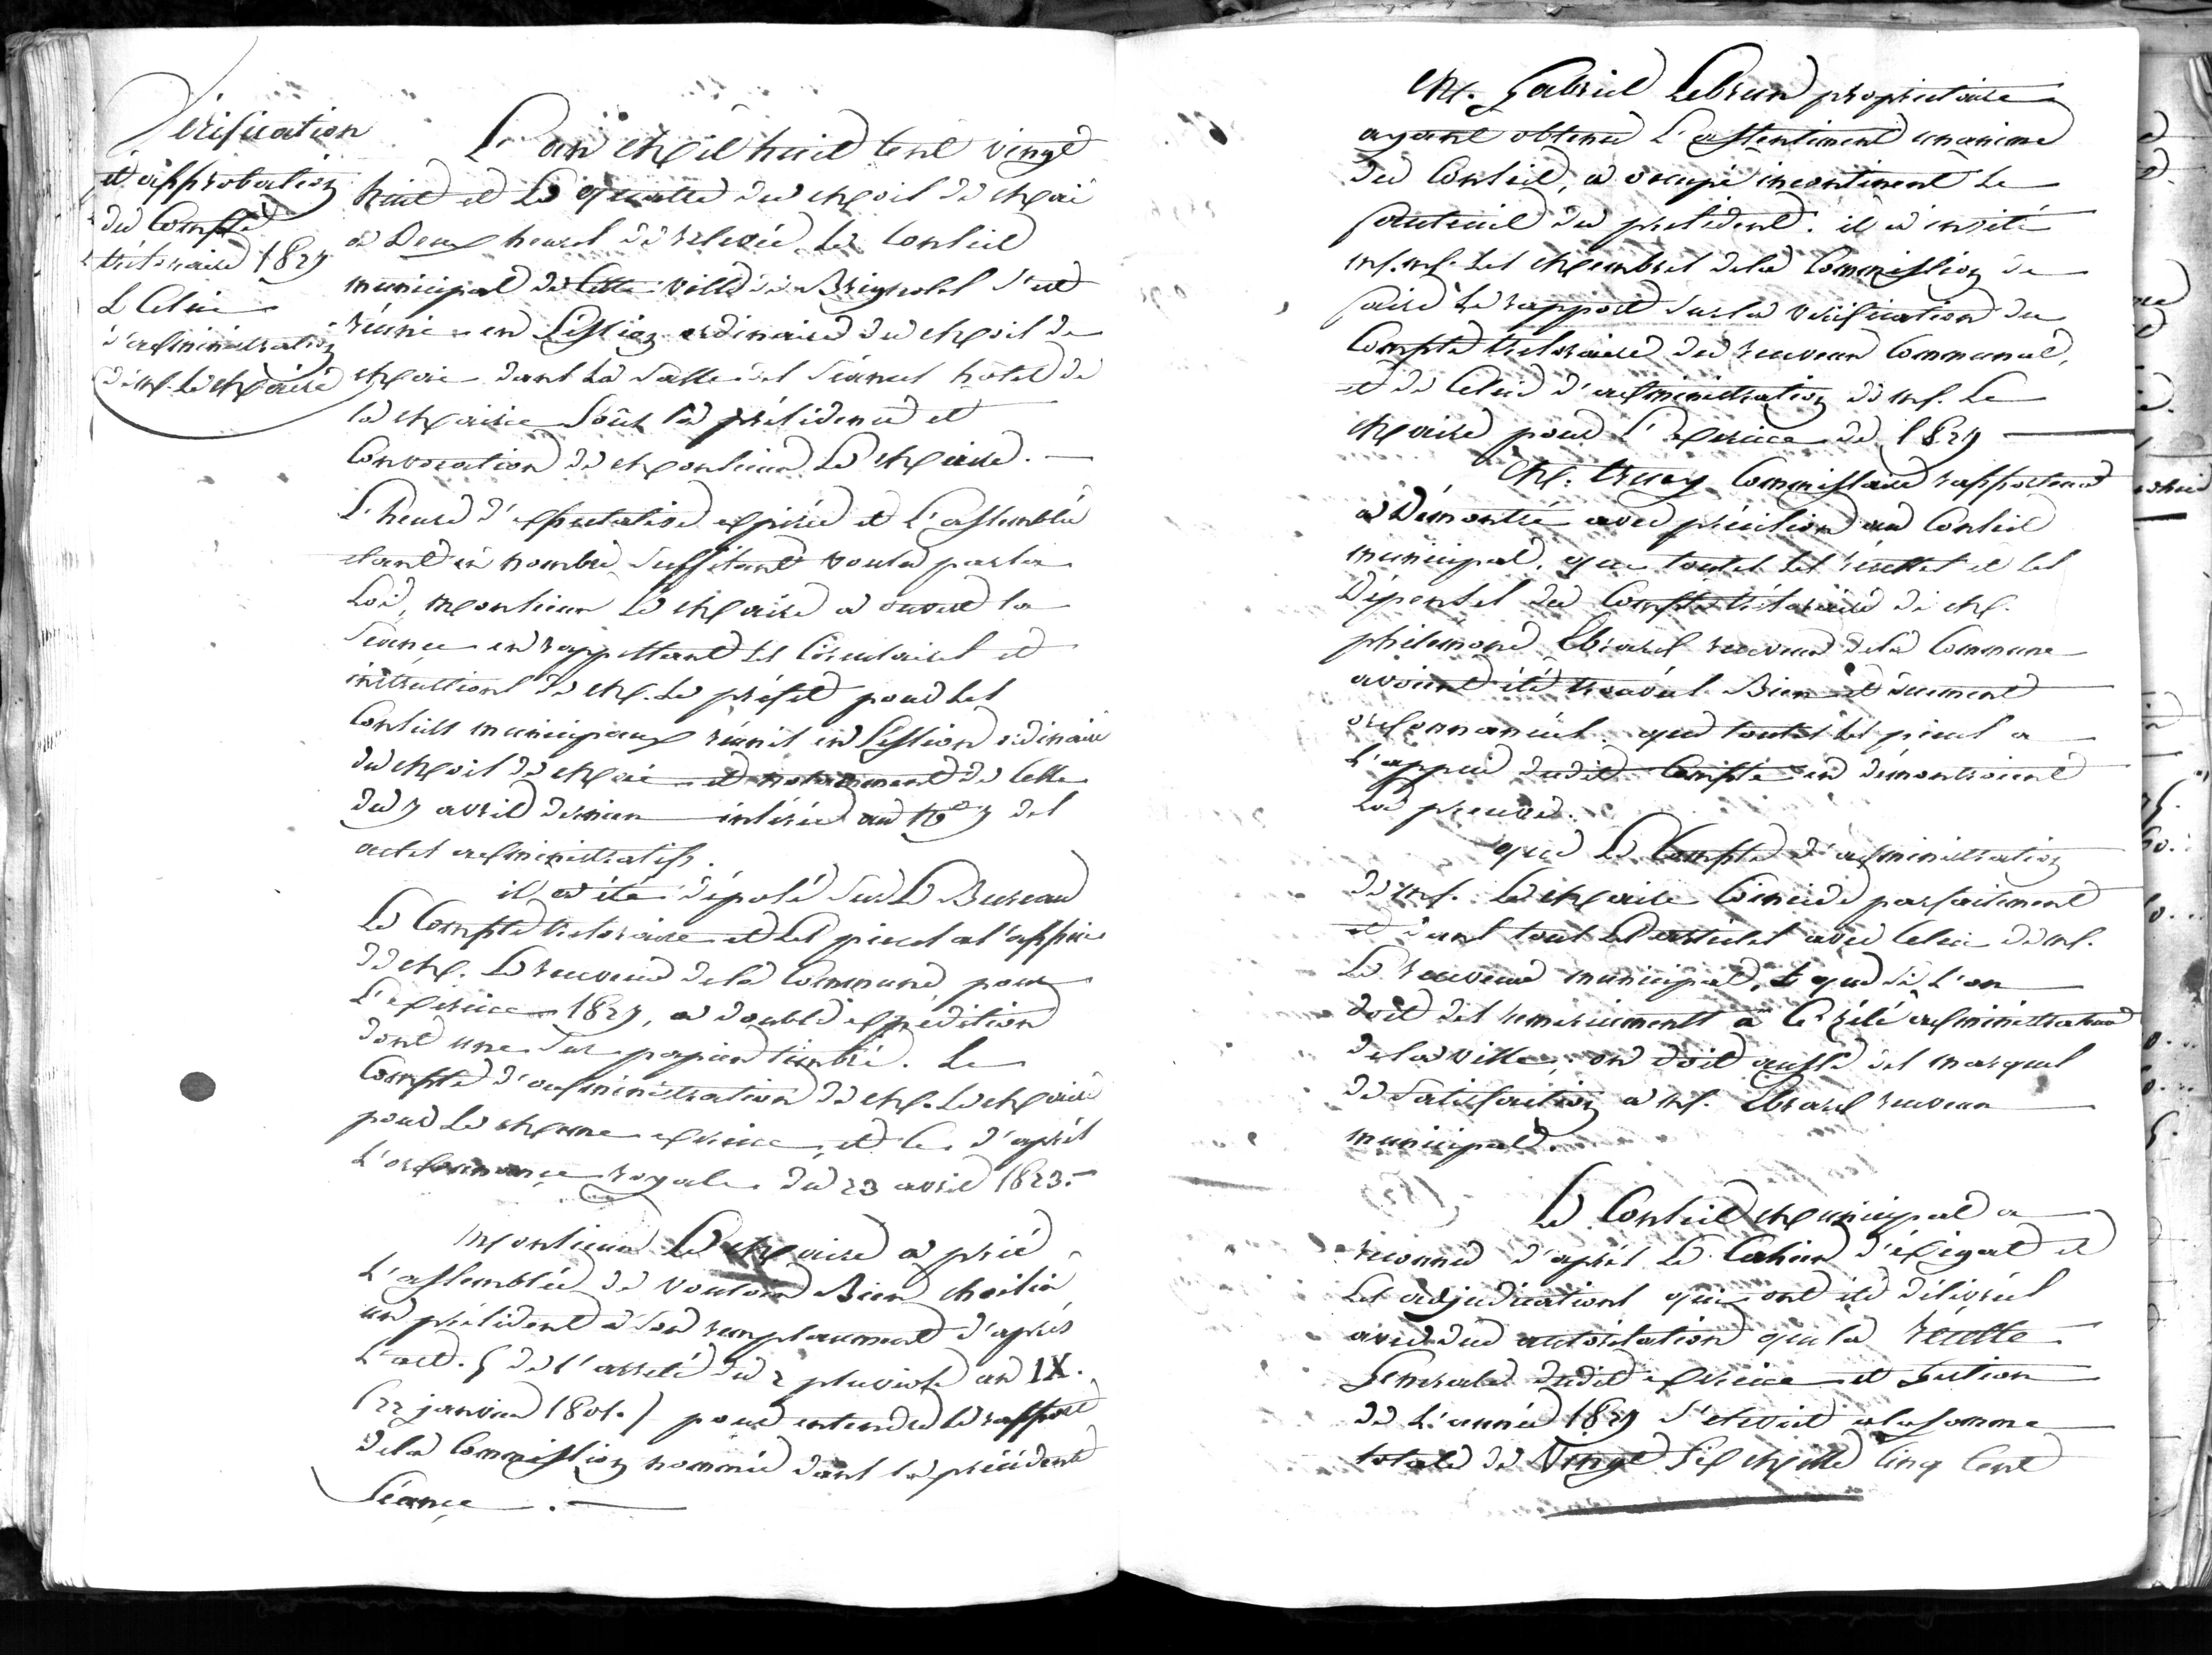 Vérification
et approbation
du Compte
trésoraire 1827
& Celui
d'administration
de M. le Maire
L'an Mil huit Cent vingt
huit et le quatre du Mois de Mai
a Deux heures de relevée, le Conseil
municipal de Cette ville de Brignoles s'est
réuni en Session ordinaire du Mois de
Mai dans la Salle des Séances hotel de
la Mairie Sous la présidence et
Convocation de Monsieur Le Maire. —
L'heure d'expectative expirée et l'assemblée
etant en nombre Suffisant voulu par la
Loi, Monsieur Le Maire a ouvert la
Séance en rappellant les Circulaires et
instructions de M. Le préfet pour les
Conseils municipaux réunis en Session ordinaire
du Mois de Mai et notamment de Celle
du 7 avril dernier insérée au N° 7 des
actes administratifs.
il a été déposé sur Le Bureau
Le Compte trésoraire et Les pieces a l'appui
de M. Le receveur de la Commune pour
L'exercice 1827, a double expédition
dont une sur papier timbré. Le
Compte d'administration de M. Le Maire
pour Le Meme exercice, et Ce d'après
L'ordonnance royale du 23 avril 1823. —
Monsieur Le Maire a prié
L'assemblée de vouloir Bien choisir
un président a son remplacement d'après
L'art. 5 de l'arreté du 2 pluviose an IX.
(22 janvier 1801.) pour entendre Le rapport
de la Commission nommée dans la précédente
Séance. —
M. Gabriel Lebrun propriétaire
ayant obtenu L'assentiment unanime
du Conseil, a occupé incontinent Le
fauteuil du président. il a invité
M.M. les Membres de la Commission de
faire Le rapport sur la vérification du
Compte trésoraire du receveur Communal,
et de Celui d'administration de M. Le
Maire pour L'exercice de 1827 —
M. trucy Commissaire rapporteur
a Démontré avec précision au Conseil
municipal, que toutes les recettes et les
Dépenses du Compte trésoraire de M.
philemond Ebrard receveur de la Commune
avoient été trouvées Bien et duement
ordonnancées. que toutes les pieces a
L'appui dudit Compte en démontroient
La preuve.
que Le Compte d'administration
de M. Le Maire Coincide parfaitement
et dans tous Les articles avec Celui de M.
Le receveur municipal, & que si l'on
doit des remerciments à Ce zélé administrateur
de la ville, on doit aussi des marques
de Satisfaction a M. Ebrard receveur
municipal.
Le Conseil Municipal a
reconnu d'après Le Cahier d'exigat et
Les adjudications qui ont été délivrées
avec due autorisation que la recette
Generale dudit exercice et Gestion
de L'année 1827 s'elevoit a la somme
totale de Vingt Six Mille Cinq Cent